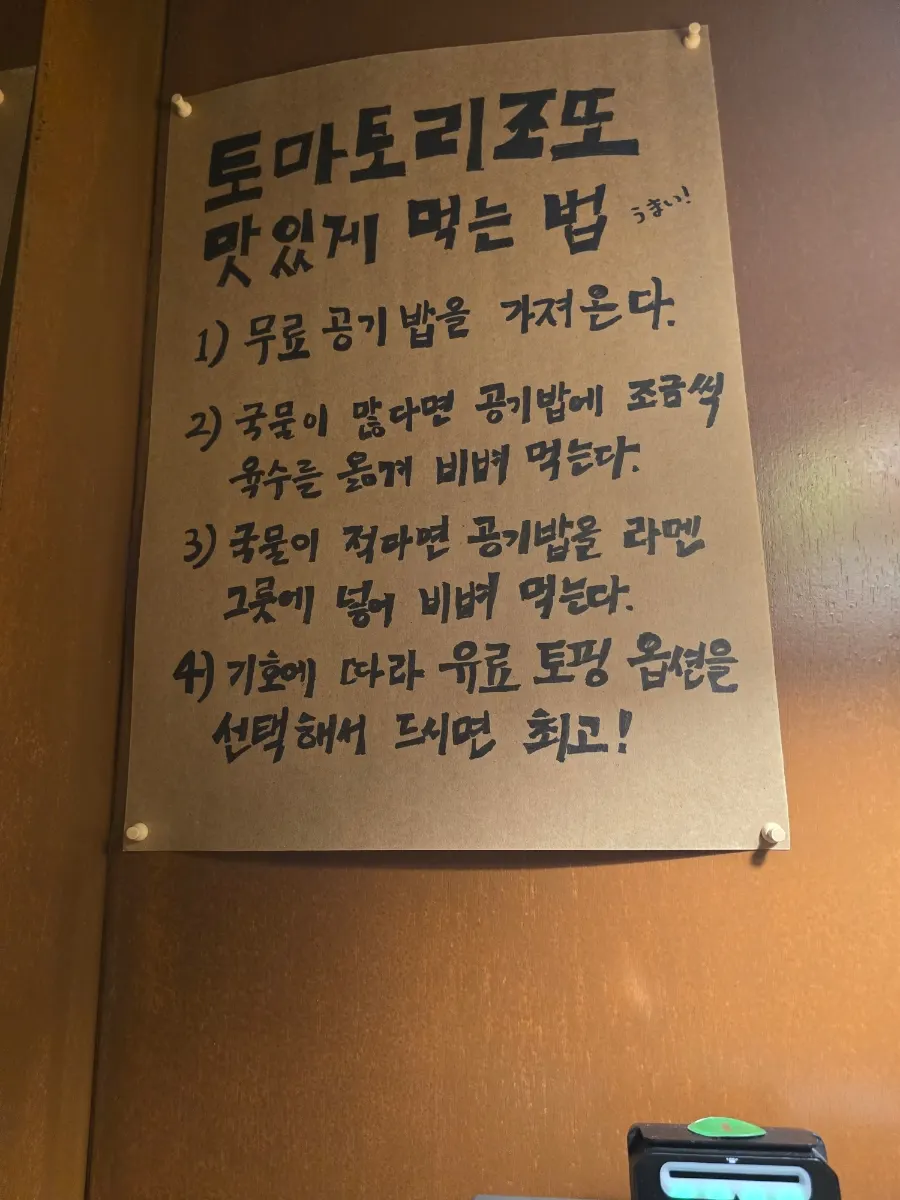 토마토리조또
맛있게 먹는 법 うまい!
1) 무료 공기밥을 가져온다.
2) 국물이 많다면 공기밥에 조금씩
육수를 옮겨 비벼 먹는다.
3) 국물이 적다면 공기밥을 라멘
그릇에 넣어 비벼 먹는다.
4) 기호에 따라 유료 토핑 옵션을
선택해서 드시면 최고!